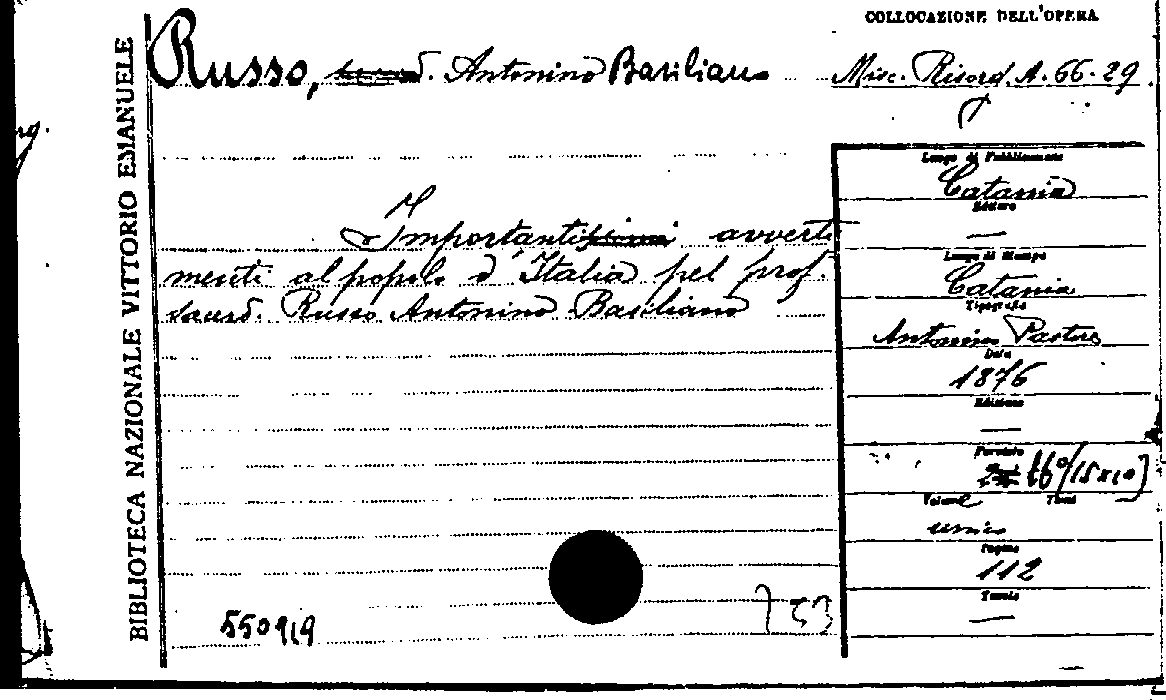 COLLOCAZIONE DELL'OPERA
Russo, Antonino Basiliano
Misc. Risord. A. 66. 29
BIBLIOTECA NAZIONALE VITTORIO EMANUELE
Importantissimi avverti
menti al popolo d'Italia pel prof.
sacerd. Russo Antonino Basiliano
Luogo di Pubblicazione
Catania
Editore
—
Luogo di Stampa
Catania
Tipografia
Antonino Pastore
Data
1876
Edizione
—
Formato
16° (15x10)
Volume Tomi
unico
Pagine
112
Tavole
—
550919
753